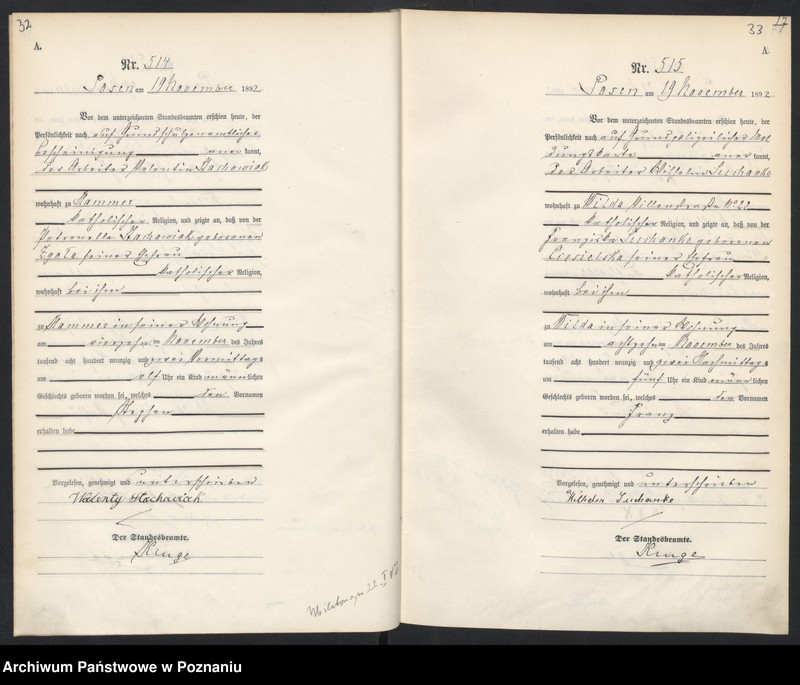 32
A.
Nr. 514
Posen am 19 November 1892
Vor dem unterzeichneten Standesbeamten erschien heute, der
Persönlichkeit nach auf Grund schulzenamtlicher
Bescheinigung anerkannt,
der Arbeiter Valentin Stachowiak
wohnhaft zu Kammer
katholischer Religion, und zeigte an, daß von der
Petronella Stachowiak geborenen
Zgola seiner Ehefrau
katholischer Religion,
wohnhaft bei ihm
zu Kammer in seiner Wohnung
am vierzehnten November des Jahres
tausend acht hundert neunzig und zwei Vormittags
um elf Uhr ein Kind männlichen
Geschlechts geboren worden sei, welches den Vornamen
Stephan
erhalten habe
Vorgelesen, genehmigt und unterschrieben
Walenty Stachowiak
Der Standesbeamte.
Kruge
33 17
A
Nr. 515
Posen am 19 November 1892
Vor dem unterzeichneten Standesbeamten erschien heute, der
Persönlichkeit nach auf Grund polizeilicher Mel
dungskarte anerkannt,
der Arbeiter Wilhelm Suchanke
wohnhaft zu Wilda Villenstraße No 22
katholischer Religion, und zeigte an, daß von der
Franziska Suchanke geborenen
Ciesielska seiner Ehefrau
katholischer Religion,
wohnhaft bei ihm
zu Wilda in seiner Wohnung
am achtzehnten November des Jahres
tausend acht hundert neunzig und zwei Nachmittags
um fünf Uhr ein Kind männlichen
Geschlechts geboren worden sei, welches den Vornamen
Franz
erhalten habe
Vorgelesen, genehmigt und unterschrieben
Wilhelm Suchanke
Der Standesbeamte.
Kruge
Archiwum Państwowe w Poznaniu